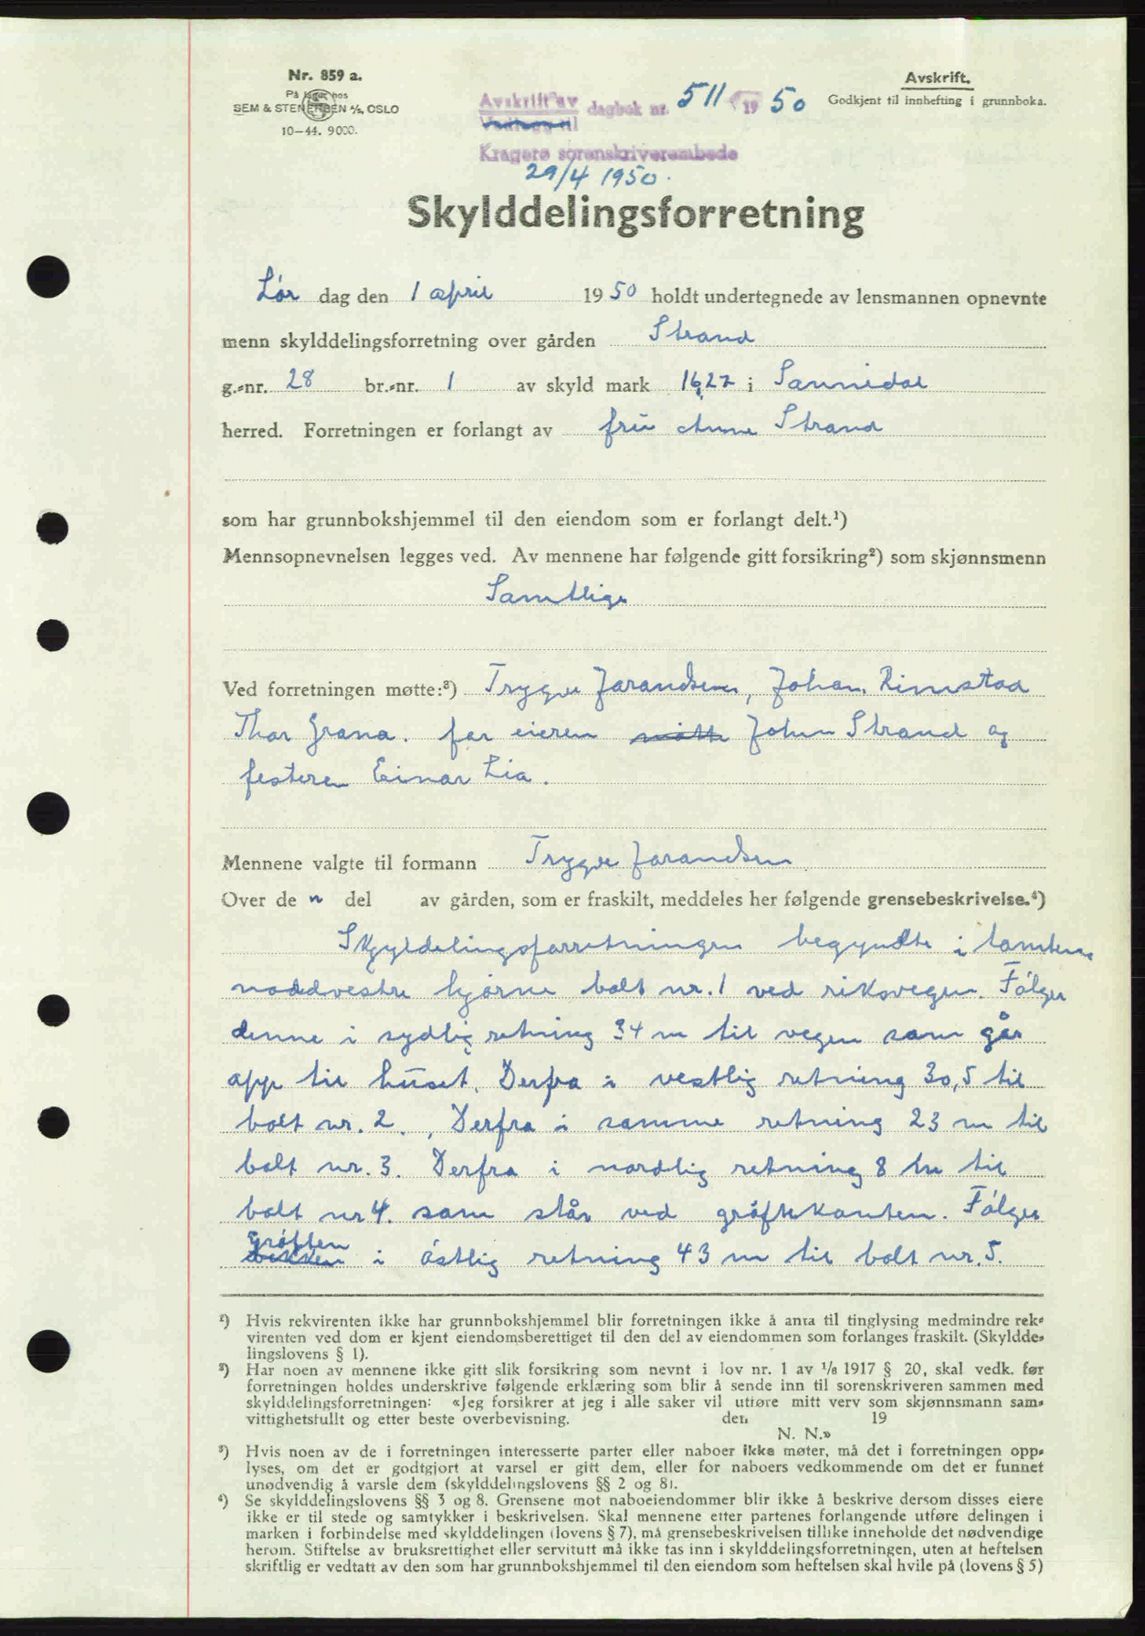 Nr. 859 a.
På lager hos
SEM & STENERSEN A/S, OSLO
10-44. 9000.
Avskrift av dagbok nr. 511 1950
Vedlegg til
Kragerø sorenskriverembede
29/4 1950.
Avskrift.
Godkjent til innhefting i grunnboka.
Skylddelingsforretning
Lør dag den 1 april 1950 holdt undertegnede av lensmannen opnevnte
menn skylddelingsforretning over gården Strand
g.-nr. 28 br.-nr. 1 av skyld mark 16,27 i Sannidal
herred. Forretningen er forlangt av fru Anne Strand
som har grunnbokshjemmel til den eiendom som er forlangt delt.¹)
Mennsopnevnelsen legges ved. Av mennene har følgende gitt forsikring²) som skjønnsmenn
Samtlige
Ved forretningen møtte:³) Trygve Jarandsen, Johan Rimstad
Thor Grana. for eieren møtte John Strand og
festeren Einar Lia.
Mennene valgte til formann Trygve Jarandsen
Over de n del av gården, som er fraskilt, meddeles her følgende grensebeskrivelse.⁴)
Skyldelingsforretningen begyndte i tomtens
nordvestre hjørne bolt nr. 1 ved riksvegen. Følger
denne i sydlig retning 34 m til vegen som går
opp til huset. Derfra i vestlig retning 30,5 til
bolt nr. 2., Derfra i samme retning 23 m til
bolt nr. 3. Derfra i nordlig retning 8 m til
bolt nr 4. som står ved grøftekanten. Følger
grøften
bekken i østlig retning 43 m til bolt nr. 5.
¹) Hvis rekvirenten ikke har grunnbokshjemmel blir forretningen ikke å anta til tinglysing medmindre rek-
virenten ved dom er kjent eiendomsberettiget til den del av eiendommen som forlanges fraskilt. (Skyldde-
lingslovens § 1).
²) Har noen av mennene ikke gitt slik forsikring som nevnt i lov nr. 1 av 1/8 1917 § 20, skal vedk. før
forretningen holdes underskrive følgende erklæring som blir å sende inn til sorenskriveren sammen med
skylddelingsforretningen: «Jeg forsikrer at jeg i alle saker vil utføre mitt verv som skjønnsmann sam-
vittighetsfullt og etter beste overbevisning. den 19
N. N.»
³) Hvis noen av de i forretningen interesserte parter eller naboer ikke møter, må det i forretningen opp-
lyses, om det er godtgjort at varsel er gitt dem, eller for naboers vedkommende om det er funnet
unødvendig å varsle dem (skylddelingslovens §§ 2 og 8).
⁴) Se skylddelingslovens §§ 3 og 8. Grensene mot naboeiendommer blir ikke å beskrive dersom disses eiere
ikke er til stede og samtykker i beskrivelsen. Skal mennene etter partenes forlangende utføre delingen i
marken i forbindelse med skylddelingen (lovens § 7), må grensebeskrivelsen tillike inneholde det nødvendige
herom. Stiftelse av bruksrettighet eller servitutt må ikke tas inn i skylddelingsforretningen, uten at heftelsen
skriftlig er vedtatt av den som har grunnbokshjemmel til den eiendom som heftelsen skal hvile på (lovens § 5)